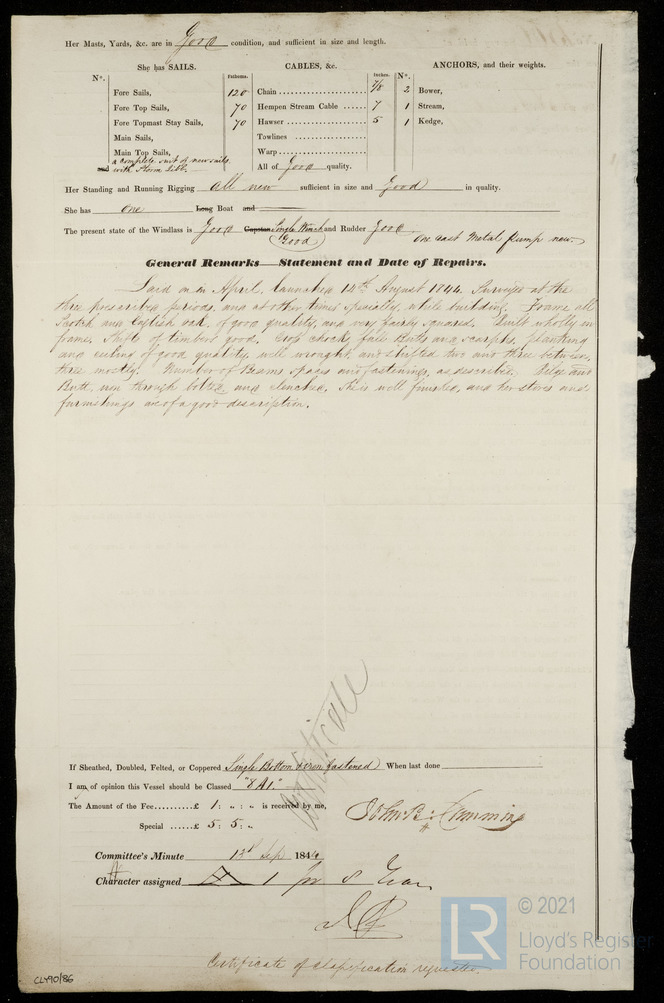 Her Masts, Yards, &c. are in Good condition, and sufficient in size and length.
She has SAILS. CABLES, &c. ANCHORS, and their weights.
N°. Fathoms. Inches. N°.
Fore Sails, 120 Chain 7/8 2 Bower,
Fore Top Sails, 70 Hempen Stream Cable 7 1 Stream,
Fore Topmast Stay Sails, 70 Hawser 5 1 Kedge,
Main Sails, Towlines
Main Top Sails, Warp
a complete suit of new sails All of Good quality.
and with Storm Jibb.
Her Standing and Running Rigging all new sufficient in size and Good in quality.
She has one Long Boat and
The present state of the Windlass is Good Capstan Single Winch and Rudder Good.
Good One cast Metal pump new
General Remarks Statement and Date of Repairs.
Laid on in April, Launched 14th August 1844. Surveyed at the
three prescribed periods, and at other times specially, while building. Frame all
Scotch and English oak, of good quality, and very fairly squared. Built wholly in
frames, Shifts of timbers good. Crop chocks, full Butts and scarphs, planking
and ceiling of good quality, well wrought, and shifted two and three between,
three mostly. Number of Beams, spaces and fastenings, as described. Bilge and
Butt iron through bolted and clenched. She is well finished, and her stores and
furnishings are of a good description.
Certificate
If Sheathed, Doubled, Felted, or Coppered Single Bottom & iron fastened When last done
I am of opinion this Vessel should be Classed "8 A1."
The Amount of the Fee £ 1 : „ : „ is received by me,
Special £ 5 : 5 : „ John B. Cumming
Committee's Minute 13th Sep 1844
Character assigned A 1 for 8 Years
CLY90/86
Certificate of classification requested.
LR
© 2021
Lloyd's Register
Foundation